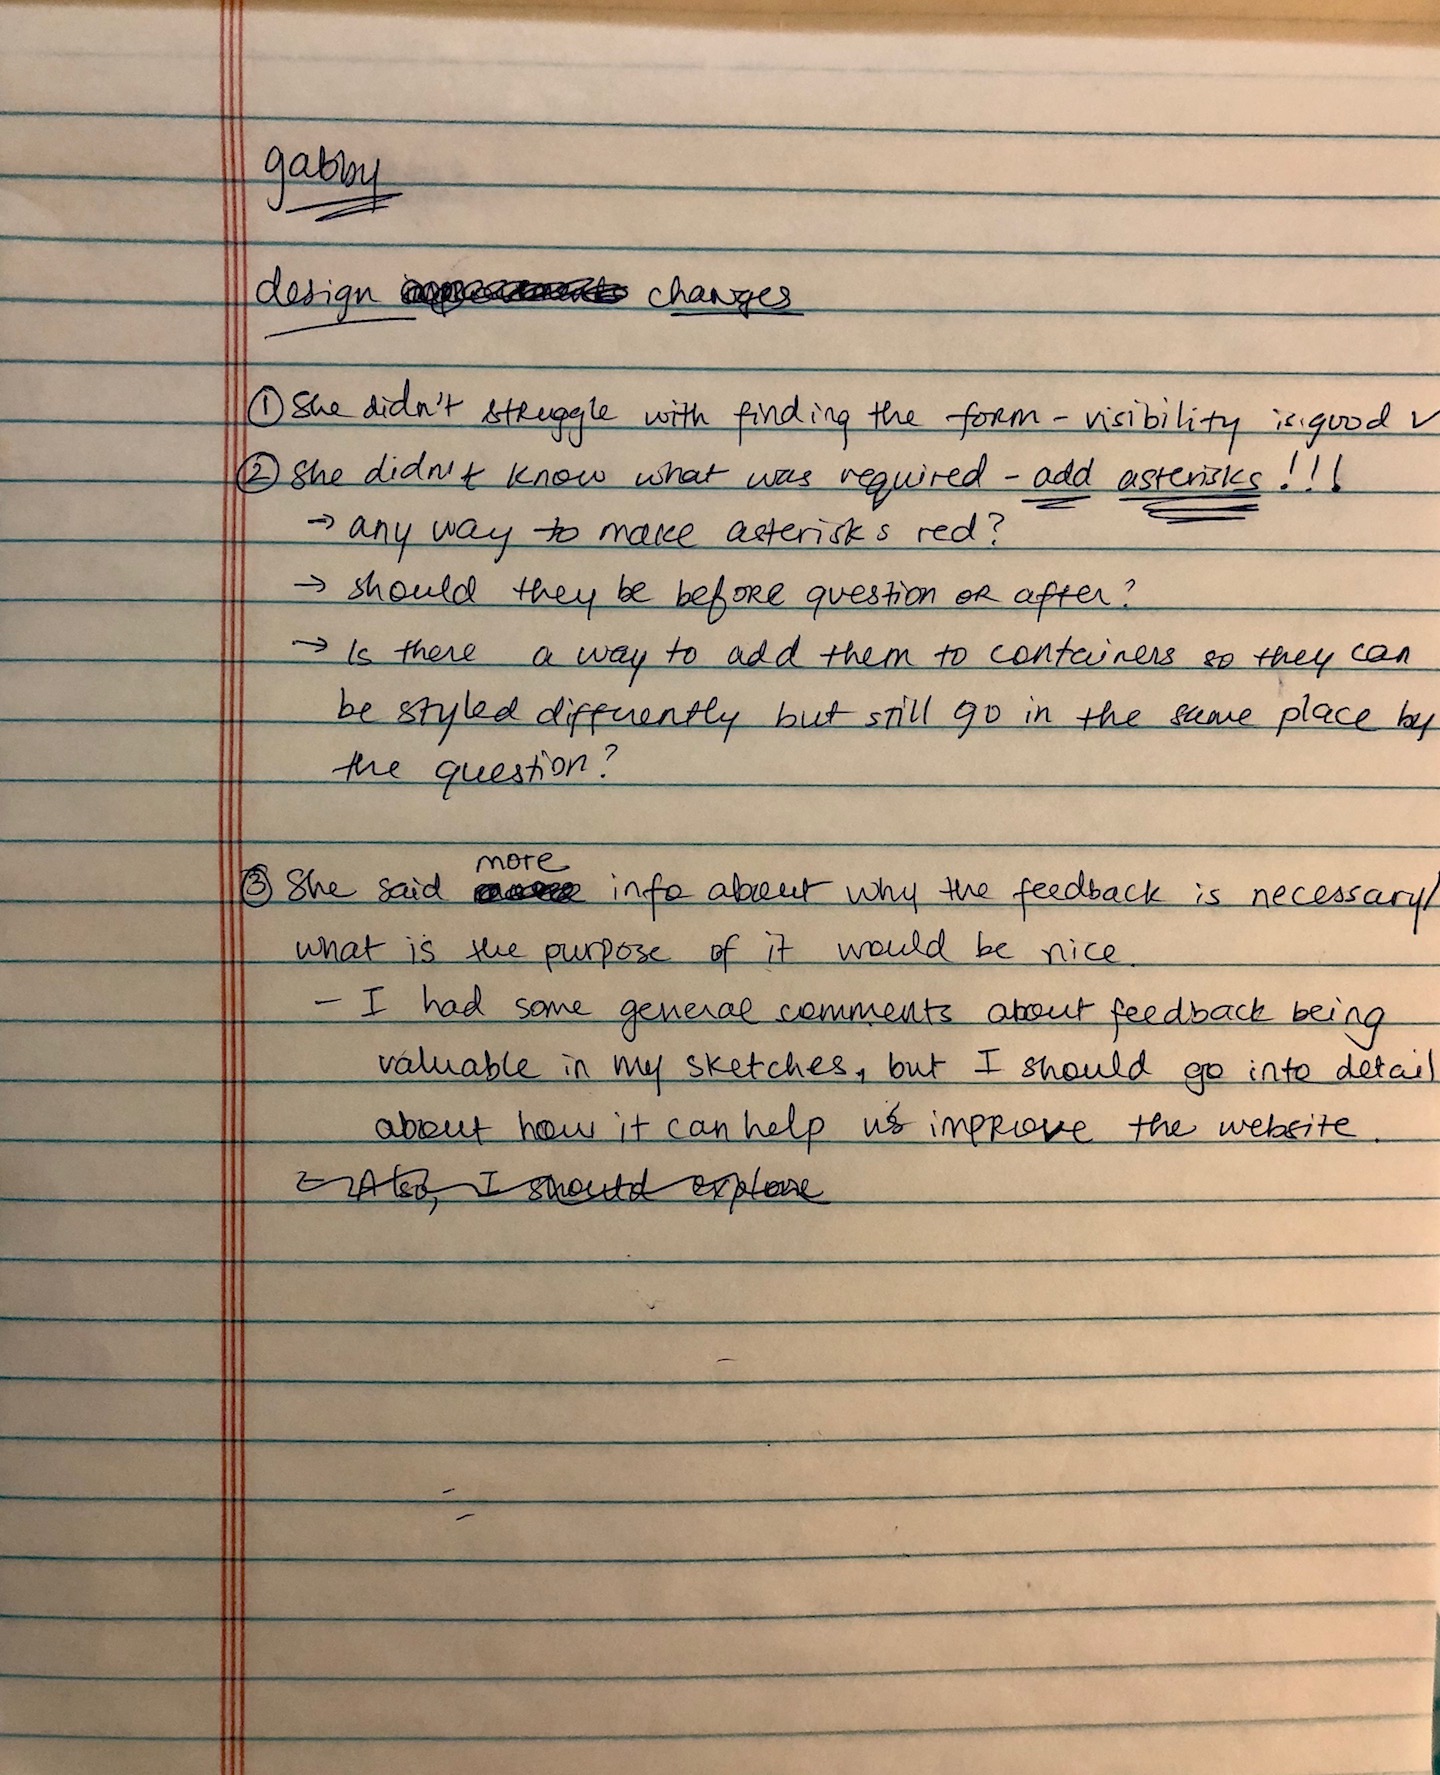 gabby
design changes
① She didn't struggle with finding the form - visibility is good ✓
② She didn't know what was required - add asterisks!!!
→ any way to make asterisks red?
→ should they be before question or after?
→ Is there a way to add them to containers so they can
be styled differently but still go in the same place by
the question?
more
③ She said info about why the feedback is necessary/
what is the purpose of it would be nice.
- I had some general comments about feedback being
valuable in my sketches, but I should go into detail
about how it can help us improve the website.
- Also, I should explore